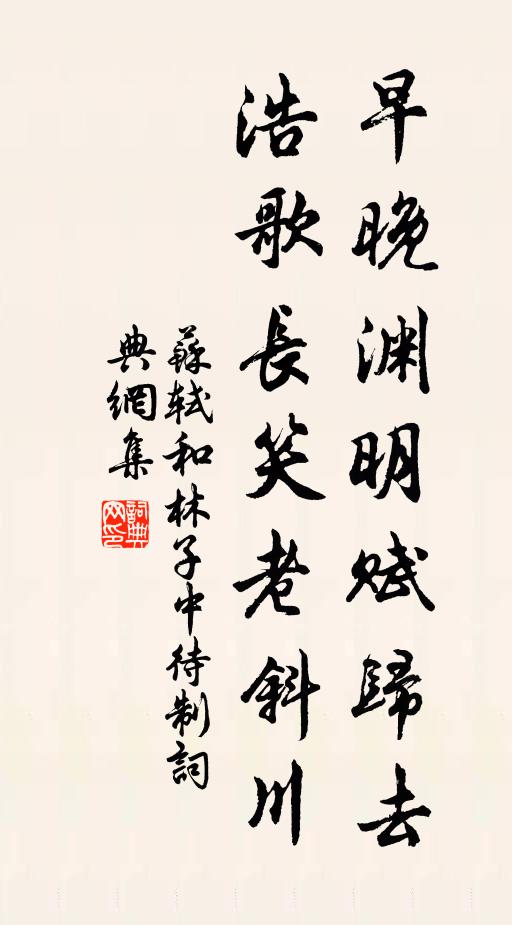 早晚渊明赋歸去
浩歌長笑老斜川
蘇軾和林子中待制詞
典網集
詞典
网印